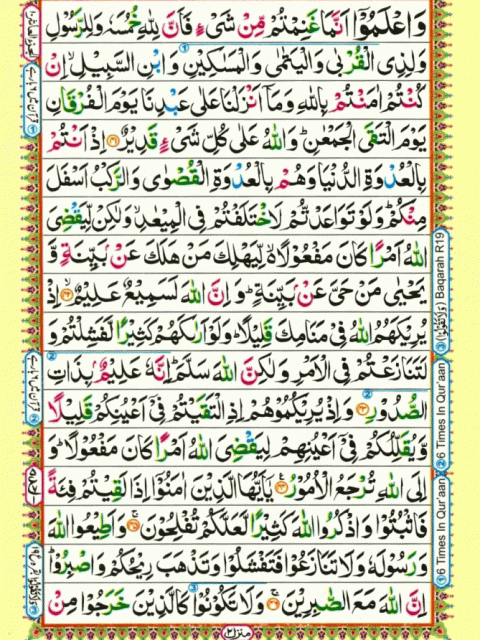 وَاعْلَمُوْۤا اَنَّمَا غَنِمْتُمْ مِّنْ شَیْءٍ فَاَنَّ لِلّٰهِ خُمُسَهٗ وَلِلرَّسُوْلِ
وَلِذِی الْقُرْبٰی وَالْیَتٰمٰی وَالْمَسٰكِیْنِ وَابْنِ السَّبِیْلِ اِنْ
كُنْتُمْ اٰمَنْتُمْ بِاللّٰهِ وَمَاۤ اَنْزَلْنَا عَلٰی عَبْدِنَا یَوْمَ الْفُرْقَانِ
یَوْمَ الْتَقَی الْجَمْعٰنِ وَاللّٰهُ عَلٰی كُلِّ شَیْءٍ قَدِیْرٌ ۴۱ اِذْ اَنْتُمْ
بِالْعُدْوَةِ الدُّنْیَا وَهُمْ بِالْعُدْوَةِ الْقُصْوٰی وَالرَّكْبُ اَسْفَلَ
مِنْكُمْ وَلَوْ تَوَاعَدْتُّمْ لَاخْتَلَفْتُمْ فِی الْمِیْعٰدِ وَلٰكِنْ لِّیَقْضِیَ
اللّٰهُ اَمْرًا كَانَ مَفْعُوْلًا لِّیَهْلِكَ مَنْ هَلَكَ عَنْۢ بَیِّنَةٍ وَّ
یَحْیٰی مَنْ حَیَّ عَنْۢ بَیِّنَةٍ وَاِنَّ اللّٰهَ لَسَمِیْعٌ عَلِیْمٌ ۴۲ اِذْ
یُرِیْكَهُمُ اللّٰهُ فِیْ مَنَامِكَ قَلِیْلًا وَلَوْ اَرٰىكَهُمْ كَثِیْرًا لَّفَشِلْتُمْ وَ
لَتَنَازَعْتُمْ فِی الْاَمْرِ وَلٰكِنَّ اللّٰهَ سَلَّمَ اِنَّهٗ عَلِیْمٌۢ بِذَاتِ
الصُّدُوْرِ ۴۳ وَاِذْ یُرِیْكُمُوْهُمْ اِذِ الْتَقَیْتُمْ فِیْۤ اَعْیُنِكُمْ قَلِیْلًا
وَّیُقَلِّلُكُمْ فِیْۤ اَعْیُنِهِمْ لِیَقْضِیَ اللّٰهُ اَمْرًا كَانَ مَفْعُوْلًا وَ
اِلَی اللّٰهِ تُرْجَعُ الْاُمُوْرُ ۴۴ یٰۤاَیُّهَا الَّذِیْنَ اٰمَنُوْۤا اِذَا لَقِیْتُمْ فِئَةً
فَاثْبُتُوْا وَاذْكُرُوا اللّٰهَ كَثِیْرًا لَّعَلَّكُمْ تُفْلِحُوْنَ ۴۵ وَاَطِیْعُوا اللّٰهَ
وَرَسُوْلَهٗ وَلَا تَنَازَعُوْا فَتَفْشَلُوْا وَتَذْهَبَ رِیْحُكُمْ وَاصْبِرُوْا
اِنَّ اللّٰهَ مَعَ الصّٰبِرِیْنَ ۴۶ وَلَا تَكُوْنُوْا كَالَّذِیْنَ خَرَجُوْا مِنْ
منزل ۲
③ Baqarah R19
② 6 Times In Qur'aan
① 6 Times In Qur'aan